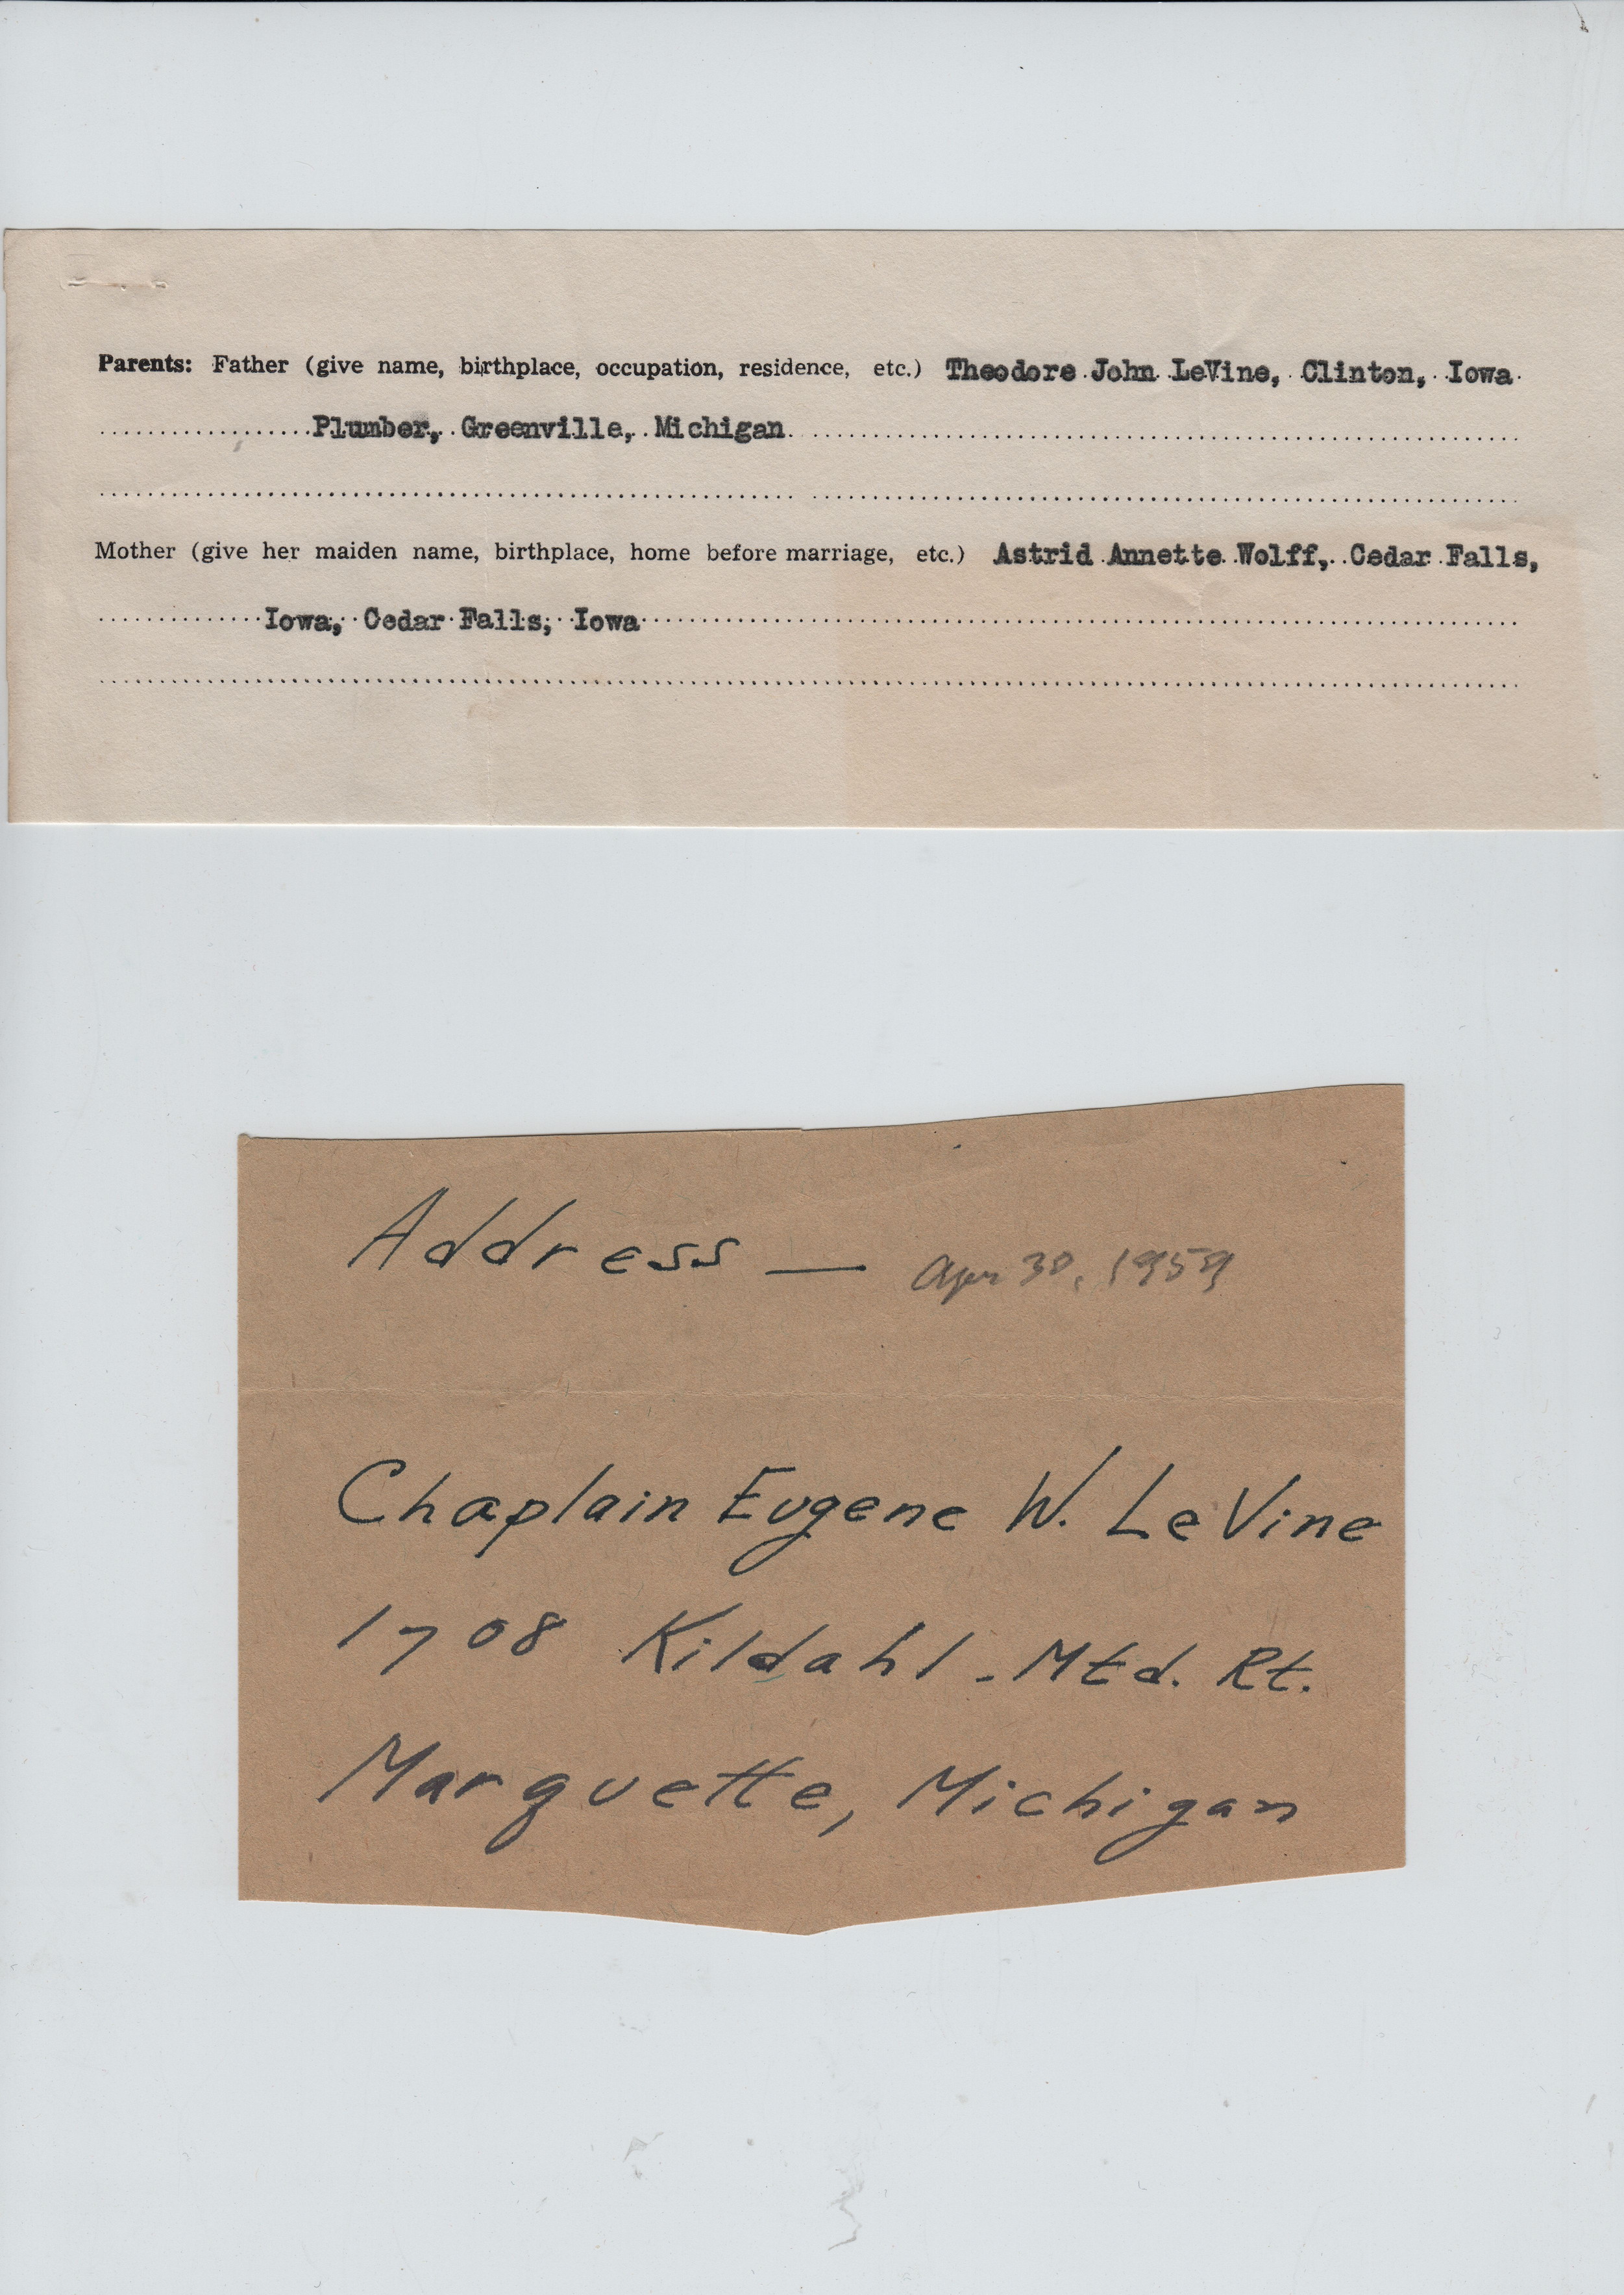 Parents: Father (give name, birthplace, occupation, residence, etc.) Theodore John LeVine, Clinton, Iowa
Plumber, Greenville, Michigan
Mother (give her maiden name, birthplace, home before marriage, etc.) Astrid Annette Wolff, Cedar Falls,
Iowa, Cedar Falls, Iowa
Address — Apr 30, 1959
Chaplain Eugene W. LeVine
1708 Kildahl - Mtd. Rt.
Marquette, Michigan